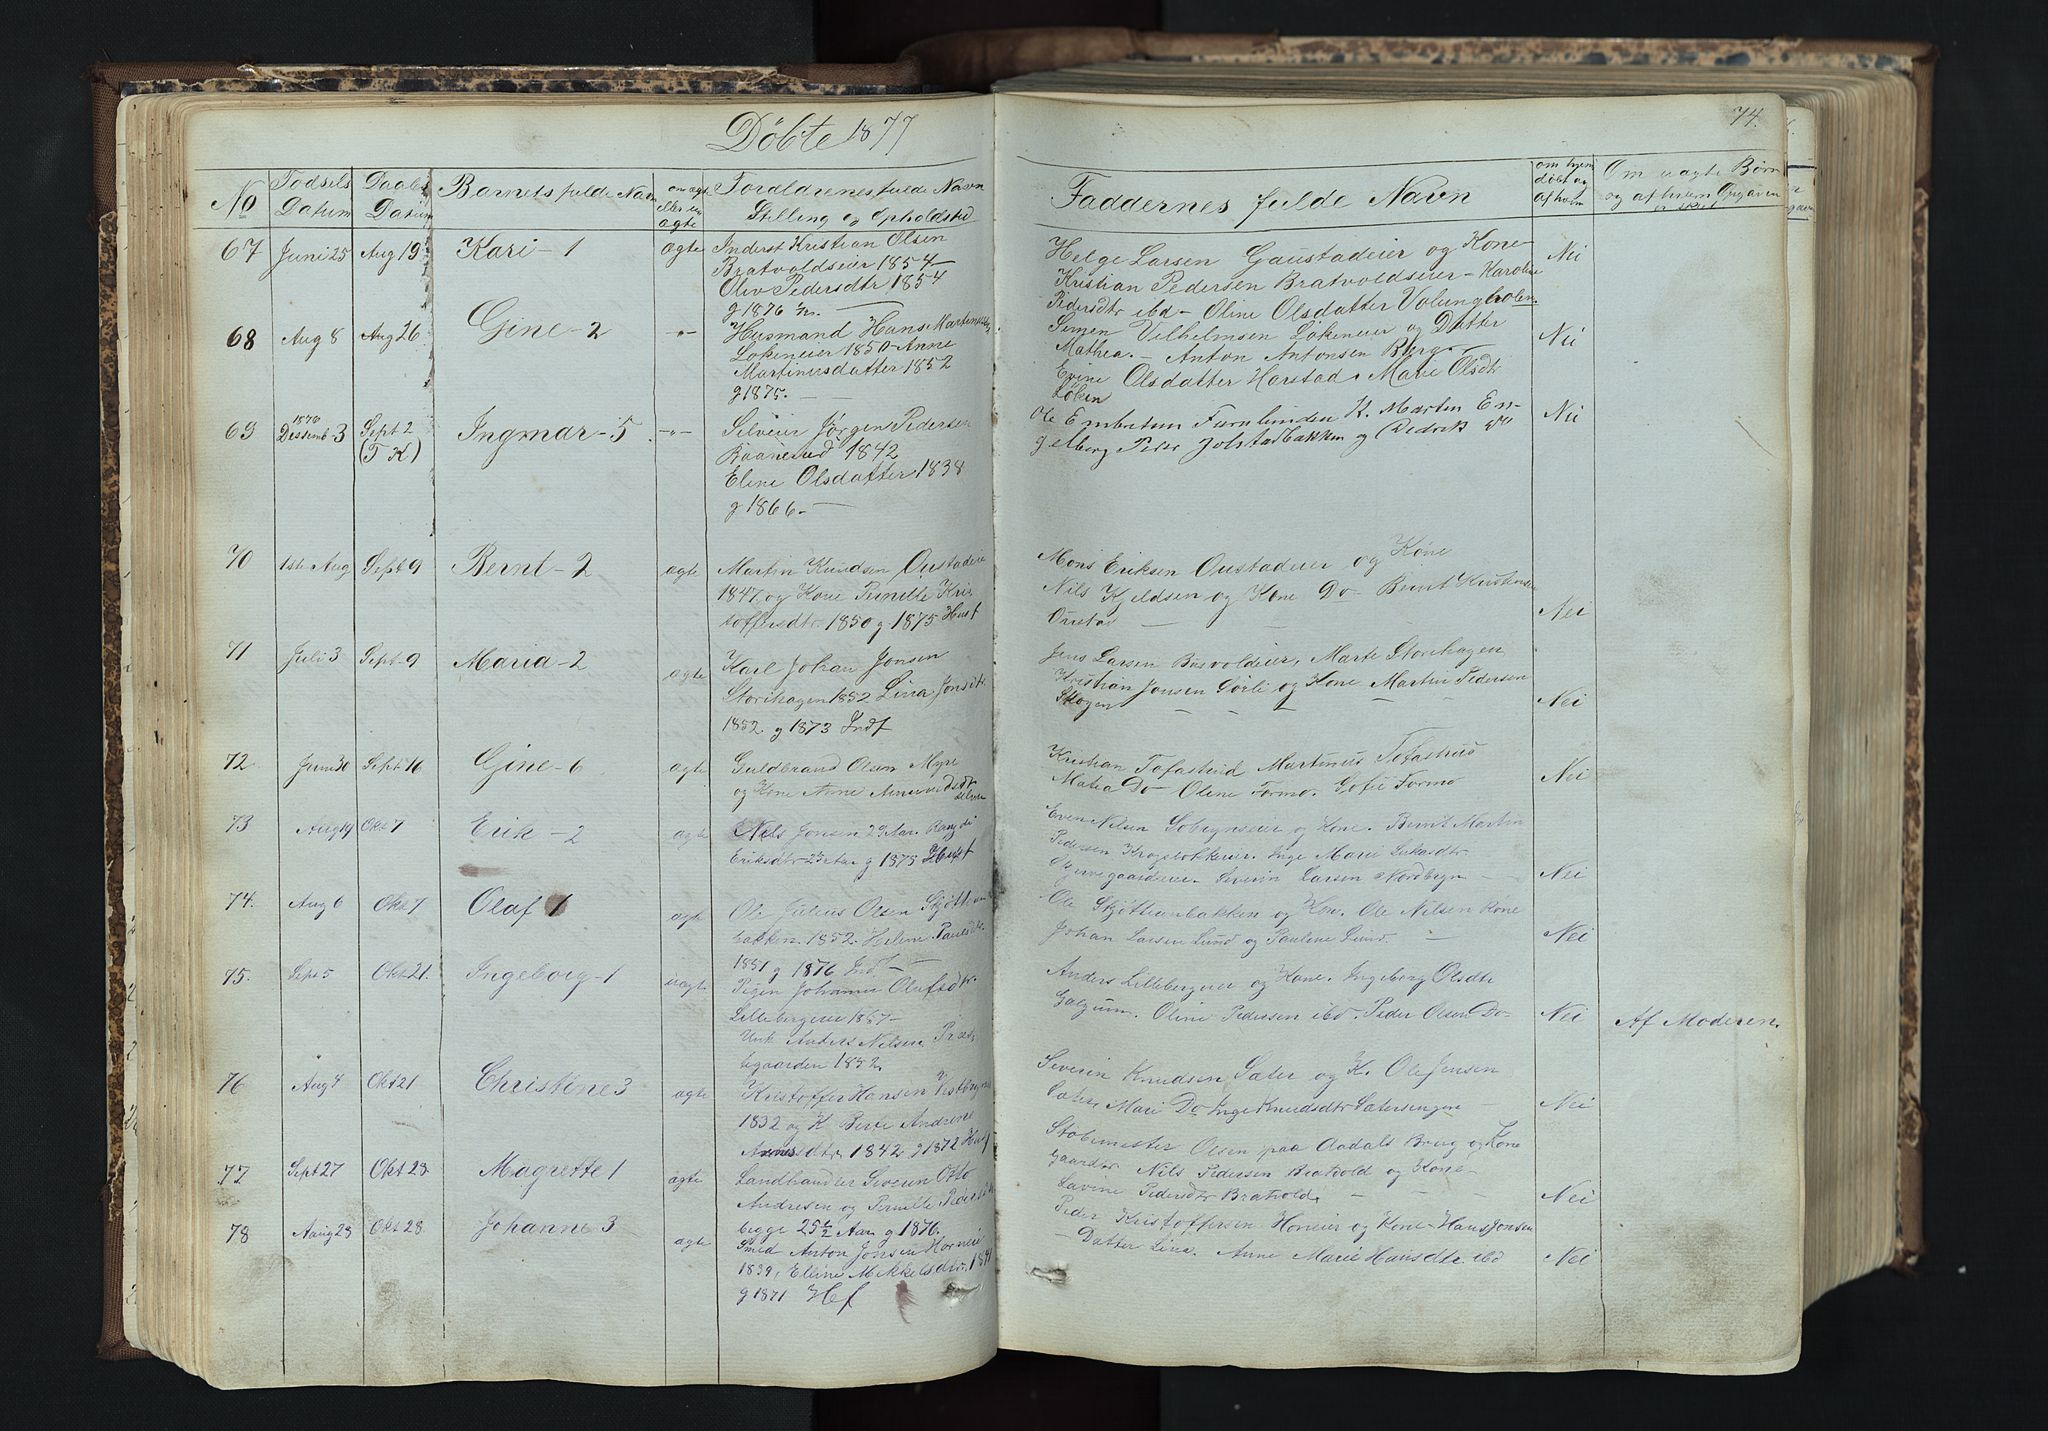 Döbte 1877
74.
No
Födsels Datum
Daabs Datum
Barnets fulde Navn
om ægte eller uægte
Foreldrenes fulde Navn Stilling og Opholdsted
Faddernes fulde Navn
om hjem døbt og af hvem
Om uægte Børn og af hvem Opgaven er skeet
67 Juni 25 Aug 19 Kari - 1 ægte Inderst Kristian Olsen
Bratvoldseier 1854
Oliv Pedersdtr 1854
g 1876
Helge Larsen Gaustadeier og Kone
Kristian Pedersen Bratvoldseier - Karoline
Pedersdtr ibd - Oline Olsdatter Volungholen
Nei
68 Aug 8 Aug 26 Gine - 2 -"- Husmand Hans Martinsen
Løkeneier 1850 - Anne
Martinusdatter 1852
g 1875. -
Simen Vilhelmsen Løkeneier og Datter
Mathea. - Anton Antonsen Berg
Evine Olsdatter Harstad. Marie Olsdtr
Løken
Nei
69 1876 Dessemb 3 Sept 2 (T K) Ingmar - 5 -"- Selveier Jørgen Pedersen
Baanerud 1842
Eline Olsdatter 1838
g 1866. -
Ole Embretsen Furulunden K. Martin En-
gelberg Peder Jolstadbakken og Didrik
Nei
70 1ste Aug Sept 9 Bernt - 2 ægte Martin Knudsen Oustadeie
1847 og Kone Pernille Kri
stoffersdtr 1850 g 1875 Husf
Mons Eriksen Oustadeier og Kone
Nils Kjeldsen og Kone Do Bernt Kristiansen
Oustad
Nei
71 Juli 3 Sept 9 Maria - 2 ægte Karl Johan Jonsen
Storihagen 1852 Lina Jonsdtr
1852 g 1873 Indf
Jens Larsen Bosvoldeier, Marte Storihagen
Kristian Jonsen Sørli og Kone Martin Pedersen
Skogen
Nei
72 Juni 30 Sept 16 Gine - 6 ægte Guldbrand Olsen Myre
og Kone Anne Amundsdtr
selveier
Kristian Tofastrud Martinus Tofastrud
Matea Do Oline Formo. Gofie Formo
Nei
73 Aug 19 Okt 7 Erik - 2 ægte Nils Jonsen 29 Aar. Rangdi
Eriksdtr 25 Aar g 1875 Husf
Even Nilsen Sobrynseier og Kone. Bernt Martin
Pedersen Krogsbokkeier. Inge Marie Lukasdtr
Severin Larsen Nordbryn
Nei
74. Aug 6 Okt 7 Olaf 1 ægte Ole Julius Olsen Skjøttian
bakken. 1852. Helene Paulsdtr
1851 g 1876 Indf -
Ole Skjøttianbakken og Kone. Ole Nilsen Kone
Johan Larsen Lund og Pauline Lund. -
Nei
75. Sept 5 Okt 21. Ingeborg - 1 uægte Pigen Johanne Olafsdtr.
Lillebergeier 1857 -
Unk Anders Nilsen Præst
egaarden 1852.
Anders Lillebergeier og Kone. Ingeborg Olsdtr
Galgum. Oline Pedersen ibd. Peder Olsen Do
Nei Af Moderen.
76 Aug 4 Okt 21 Christine 3 ægte Kristoffer Hansen Vestbryns
1832 og K Berte Andrine
Arnesdtr. 1842 g 1872 Husf
Severin Knudsen Sater og K. Ole Jensen
Sater. Mari Do Inge Knudsdtr Satersengen
Nei
77 Sept 27 Okt 28 Magrette 1 ægte Landhandler Severin Otto
Andresen og Pernille Peders
begge 25 1/2 Aar g 1876.
Stobemester Olsen paa Aadals Brug og Kone
Gaardbr Nils Pedersen Bratvold og Kone -
Lavine Pedersdtr Bratvold.
Nei
78 Aug 28 Okt 28 Johanne 3 ægte Smed Anton Jonsen Horneie
1839, Elline Mikkelsdtr. 1841
g 1871 Hf
Peder Kristoffersen Honeier og Kone - Hans Jonsen
- Datter Lina. Anne Marie Hansdtr ibd
Nei